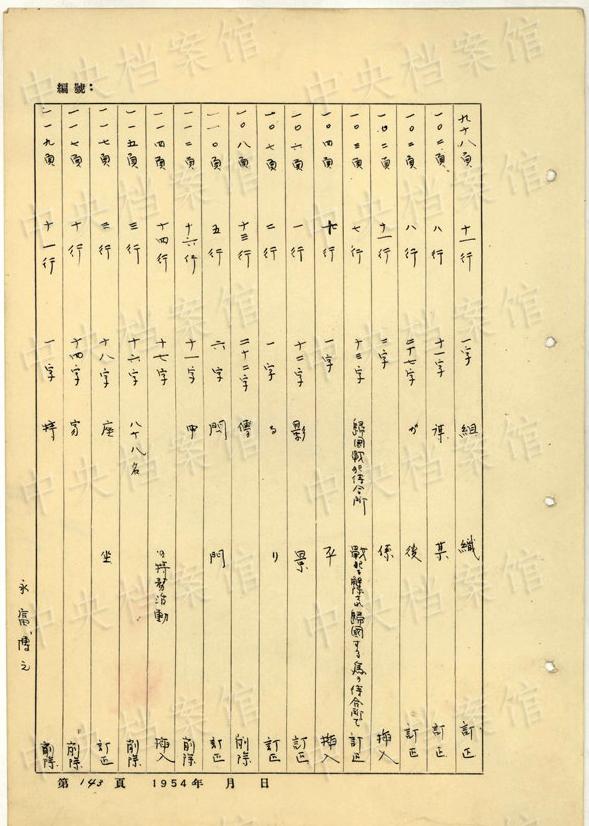 編號：
九十八頁 十一行 一字 組 織 訂正
一〇二頁 八行 十一字 謀 某 訂正
一〇二頁 八行 二十七字 が 後 訂正
一〇二頁 十一行 二字 係 挿入
一〇三頁 七行 十三字 訂正
一〇四頁 行 一字 平 挿入
一〇六頁 一行 十二字 影 景 訂正
一〇七頁 二行 一字 る り 訂正
一〇八頁 十三行 二十二字 傳 削除
一一〇頁 五行 六字 閃 門 訂正
一一二頁 十六行 十一字 中 削除
一一四頁 十四行 十七字 挿入
一一五頁 三行 十六字 八十八名 削除
一一七頁 三行 十八字 座 坐 訂正
一一七頁 十行 十四字 削除
一一九頁 十一行 一字 特 削除
永富博之
第 143 頁 1954年 月 日
中央档案馆